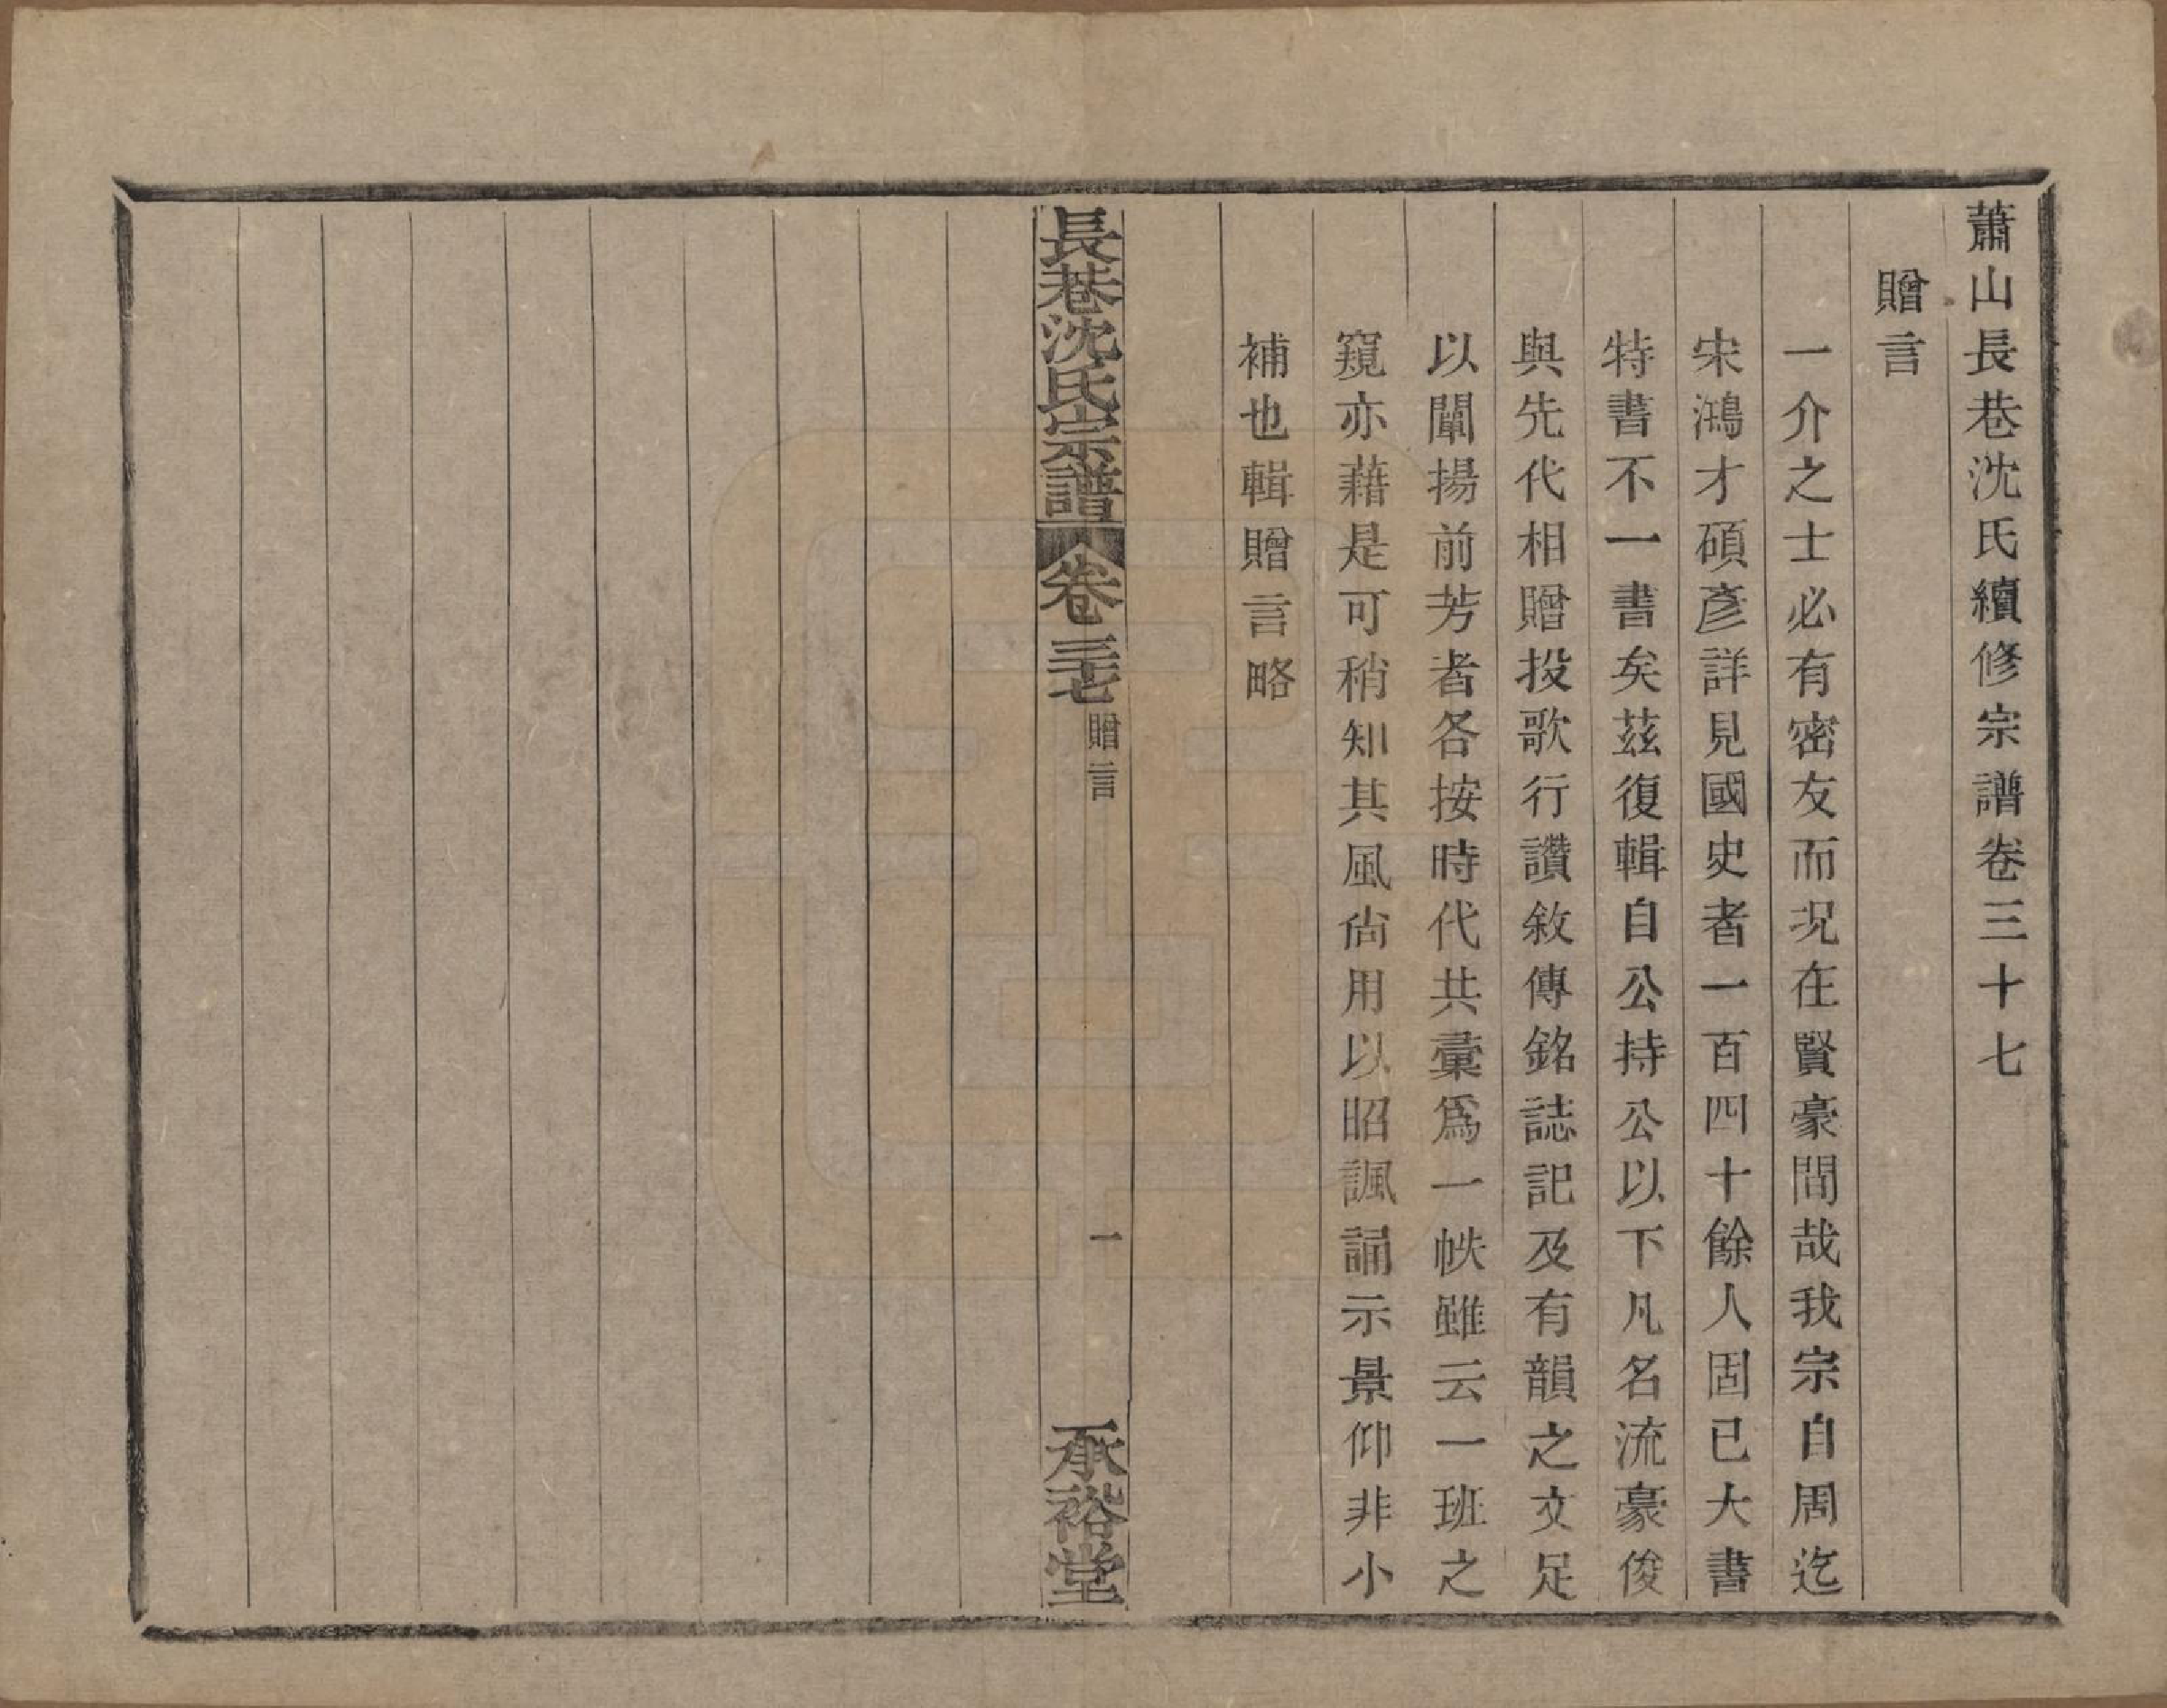 蕭山長巷沈氏續修宗譜卷三十七
贈言
一介之士必有密友而況在賢豪間哉我宗自周迄
宋鴻才碩彥詳見國史者一百四十餘人固已大書
特書不一書矣茲復輯自公持公以下凡名流豪俊
與先代相贈投歌行讚敘傳銘誌記及有韻之文足
以闡揚前芳者各按時代共彙爲一帙雖云一班之
窺亦藉是可稍知其風尙用以昭諷誦示景仰非小
補也輯贈言略
長巷沈氏宗譜 卷三十七 贈言 一 承裕堂